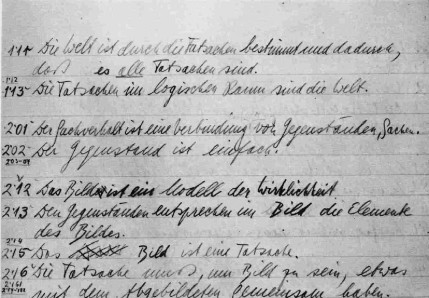 1'11 Die Welt ist durch die Tatsachen bestimmt und dadurch,
daß es alle Tatsachen sind.
1'12
1'13 Die Tatsachen im logischen Raum sind die Welt.
2'01 Der Sachverhalt ist eine Verbindung von Gegenständen, Sachen.
2'02 Der Gegenstand ist einfach.
2'12 Das Bild ist ein Modell der Wirklichkeit
2'13 Den Gegenständen entsprechen im Bild die Elemente
des Bildes.
2'14
2'15 Das Bild ist eine Tatsache.
2'16 Die Tatsache muß, um Bild zu sein, etwas
mit dem Abgebildeten gemeinsam haben.